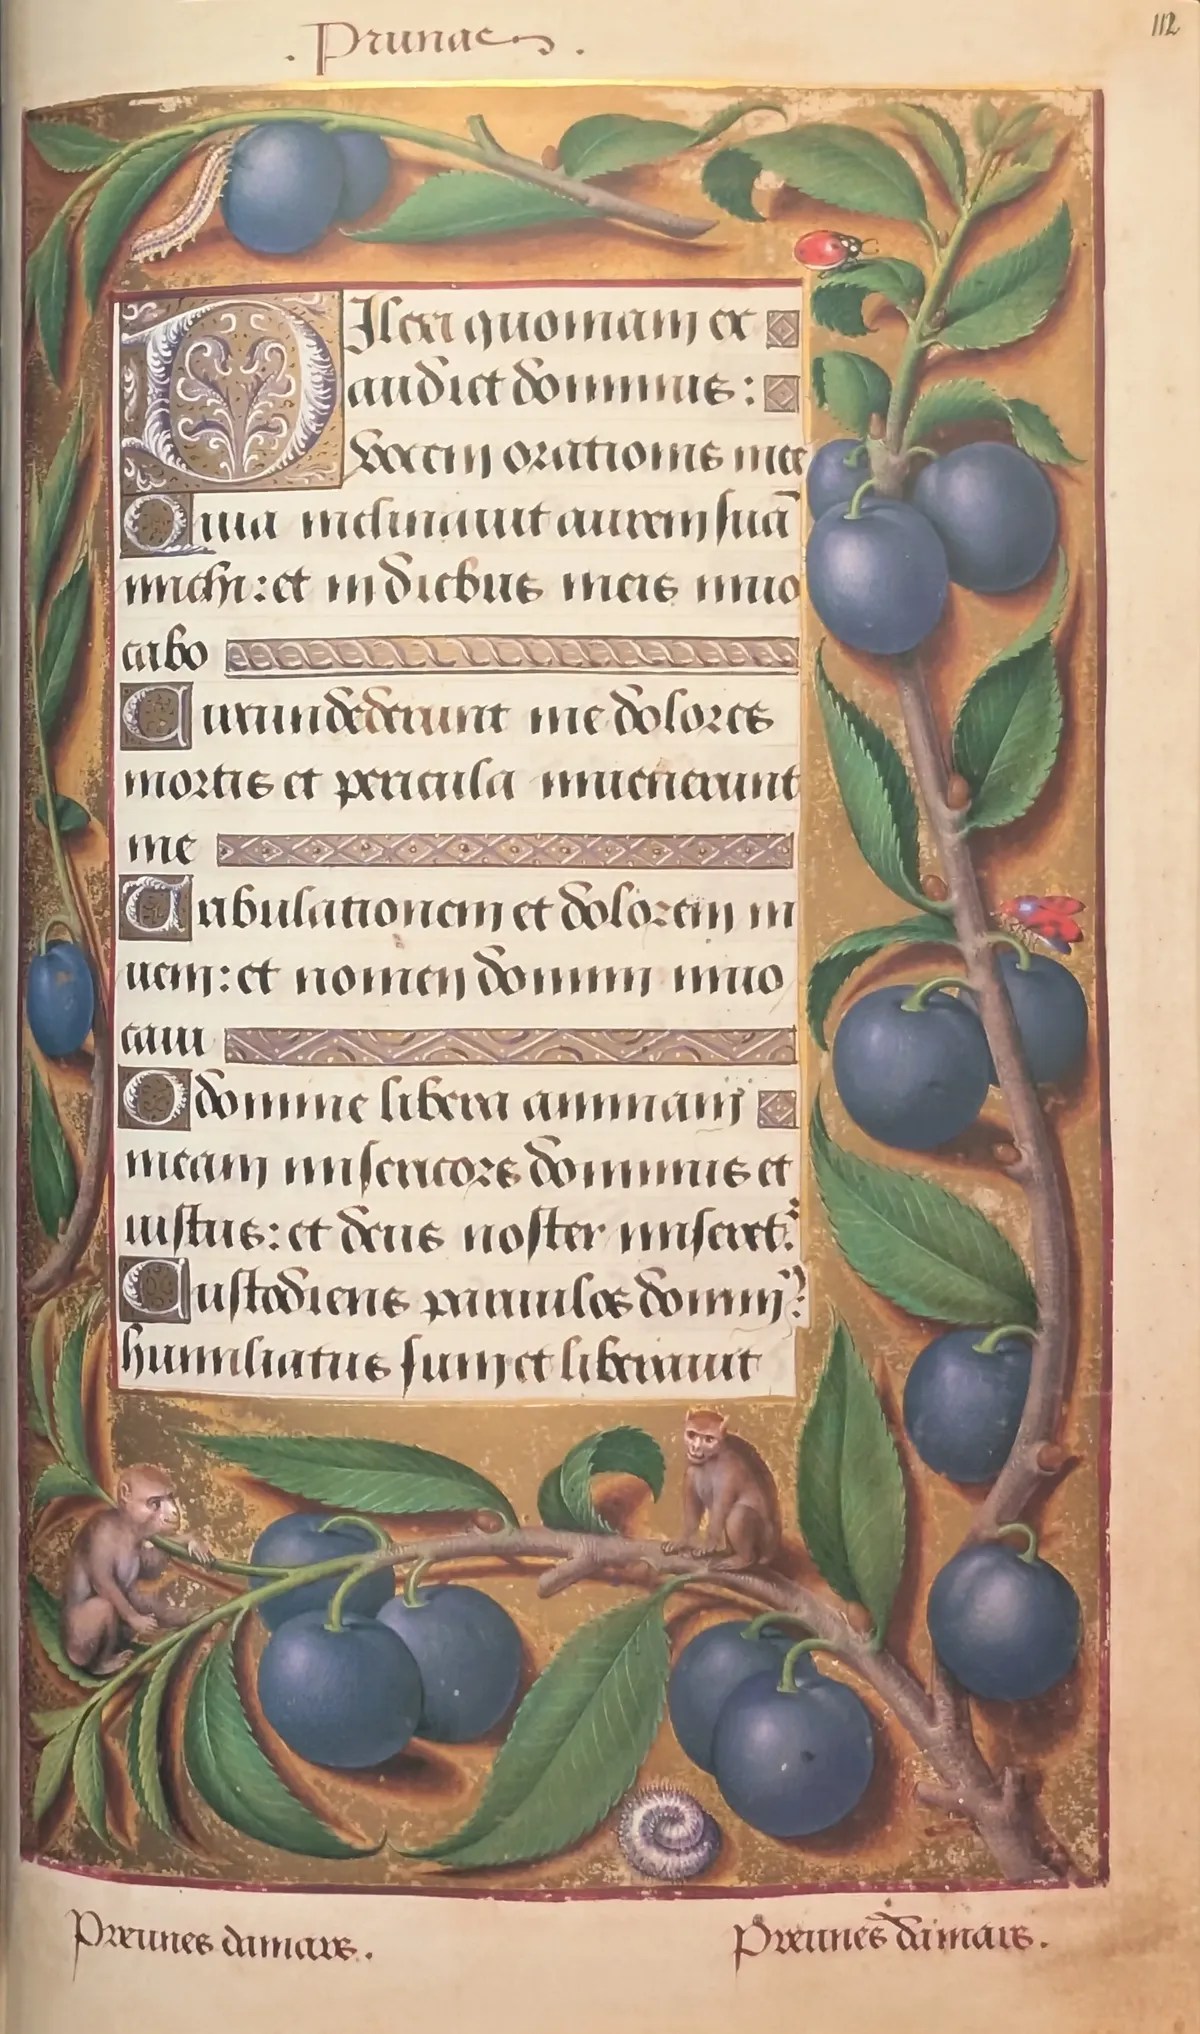 . Prunae .
112
Dilexi quoniam ex
audiet dominus:
vocem orationis mee
Quia inclinavit aurem suā
michi: et in diebus meis invo
cabo
Circundederunt me dolores
mortis et pericula invenerunt
me
Tribulationem et dolorem in
veni: et nomen domini invo
cavi
O domine libera animam
meam misericors dominus et
iustus: et deus noster miseret̉.
Custodiens parvulos domin̉:
humiliatus sum et liberavit
Preunes damars.
Preunes damars.